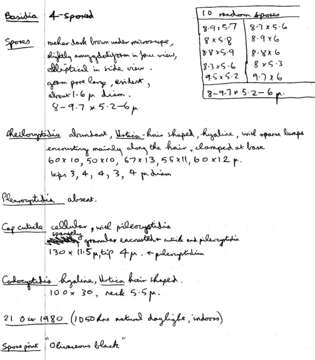 Basidia 4-Spored
Spores rather dark brown under microscope,
slightly amygdaliform in face view,
elliptical in side view.
germ pore large, evident,
about 1.6 μ diam.
8-9.7 x 5.2-6 μ.
10 random spores
8.9 x 5.7 8.7 x 5.6
8 x 5.8 8.9 x 6
8.8 x 5.9 8.8 x 6
8.3 x 5.6 8 x 5.3
9.5 x 5.2 9.7 x 6
8-9.7 x 5.2-6 μ.
Cheilocystidia abundant, Urtica-hair shaped, hyaline, with sparse lumps
encrusting mainly along the hair, clamped at base
60 x 10, 50 x 10, 67 x 13, 55 x 11, 60 x 12 μ.
tips 3, 4, 4, 3, 4 μ diam
Pleurocystidia absent.
Cap cuticle cellular, with pileocystidia
sparsely
granular encrusted cuticle and pileocystidia
130 x 11.5 μ, tip 4 μ. pileocystidium
Caulocystidia hyaline, Urtica hair shaped.
100 x 30, neck 5.5 μ.
21 Oct 1980 (1050 hrs natural daylight, indoors)
Spore print "Olivaceous black"